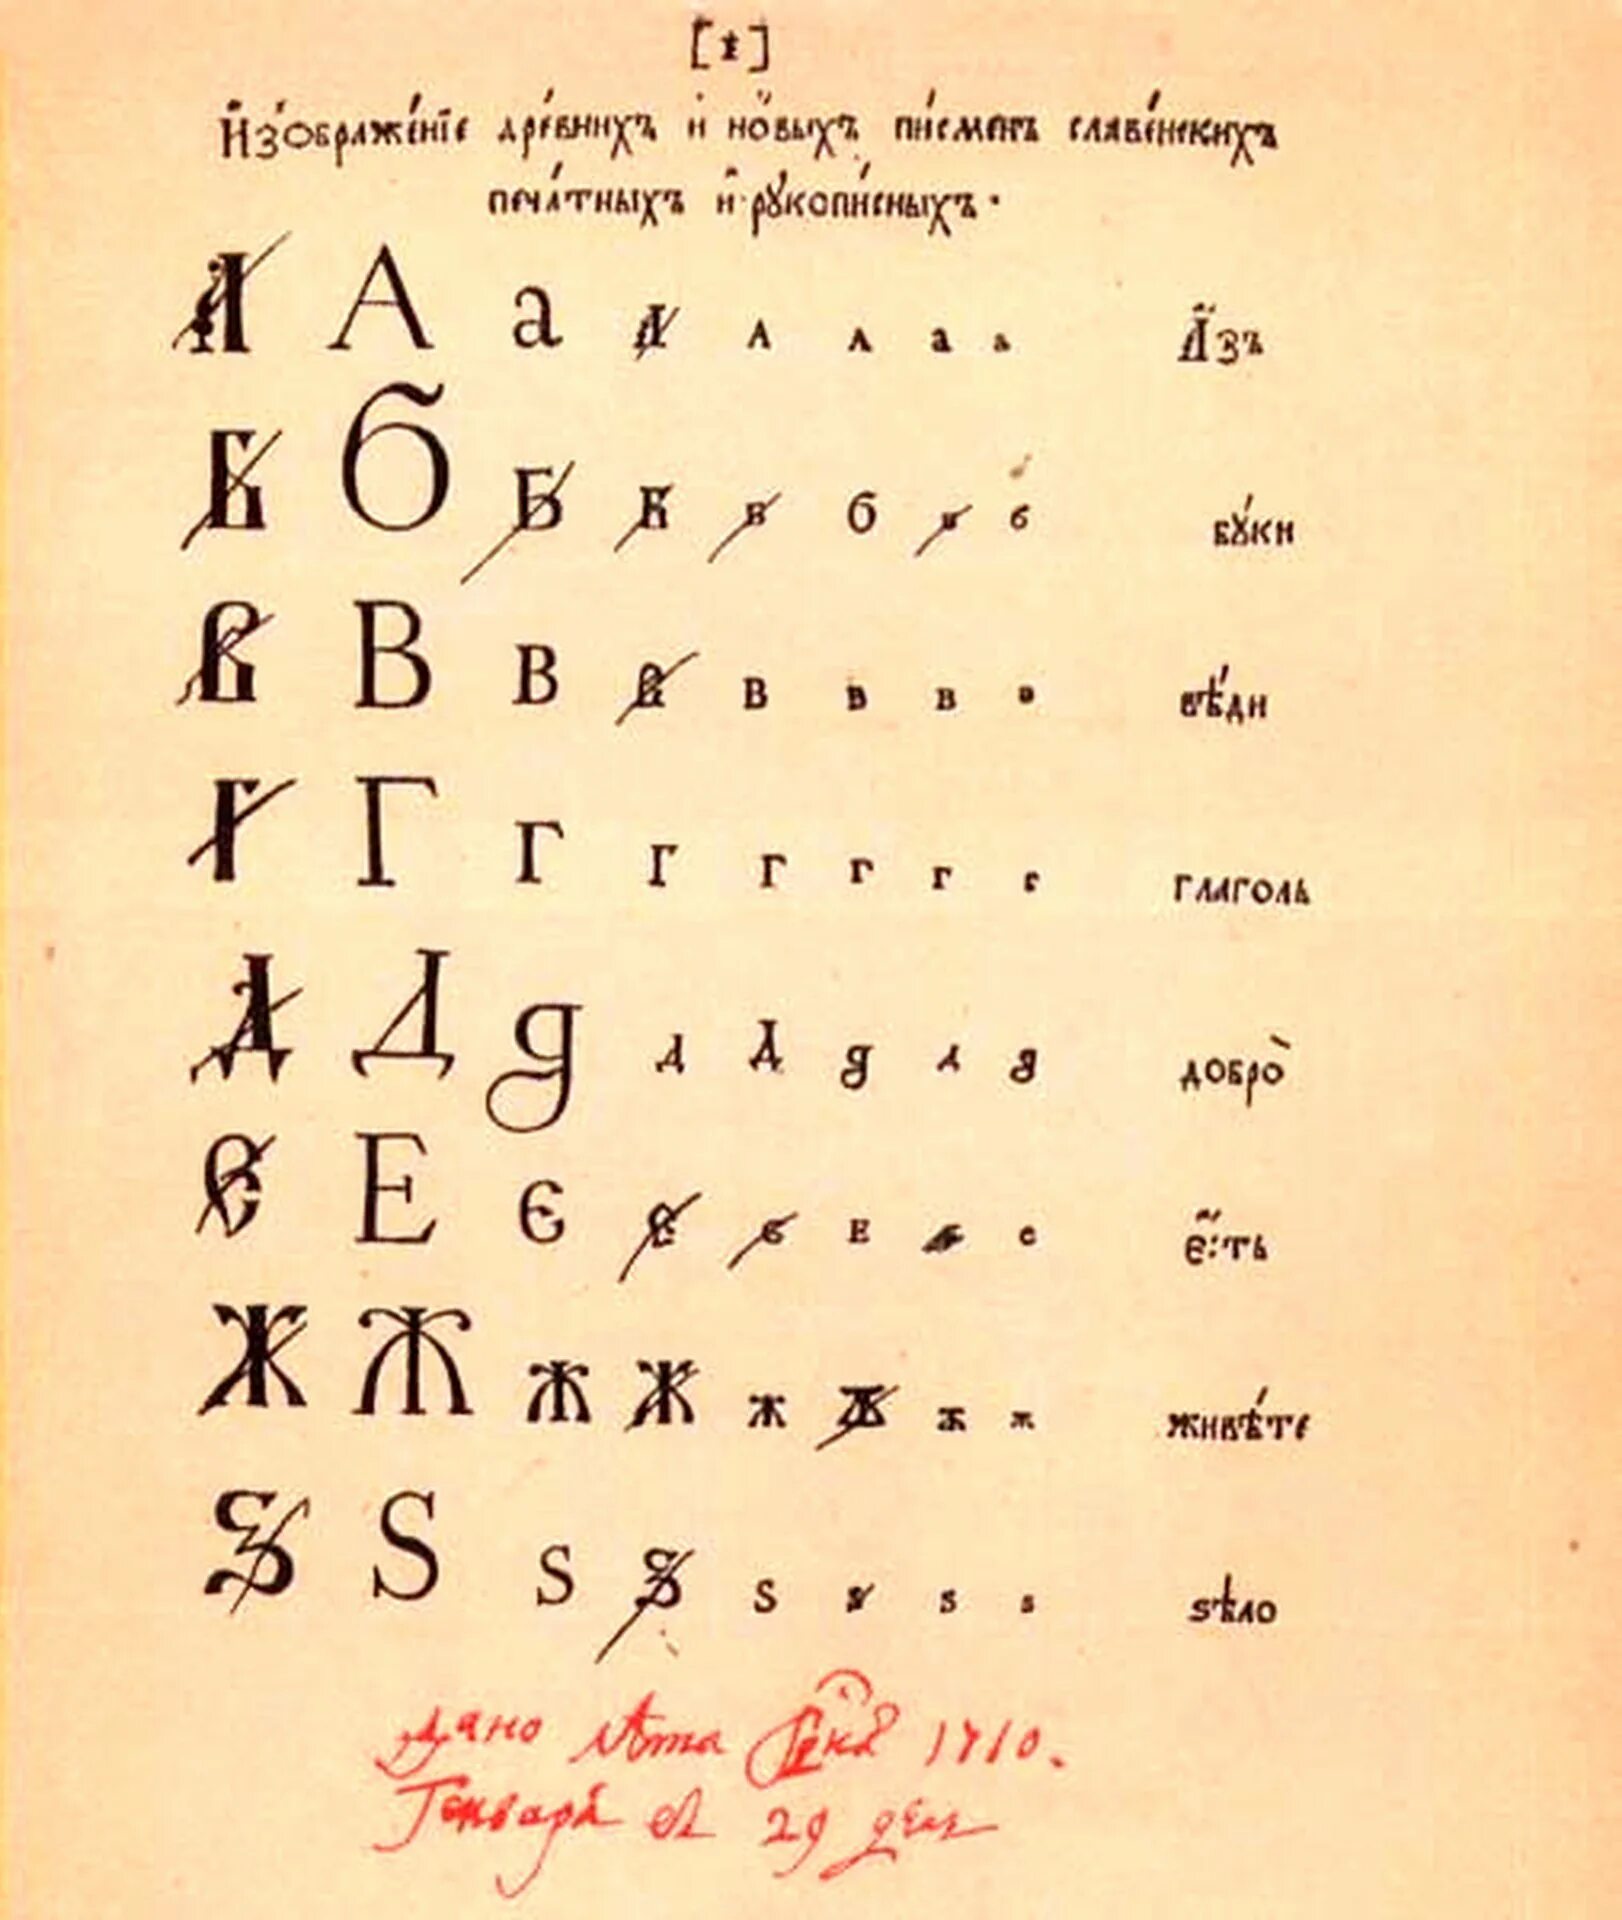 [1]
И҆зѡбраже́нїе дре́внихъ и҆ но́выхъ пи́сменъ славе́нскихъ
печа́тныхъ и҆ рꙋкопи́сныхъ.
А А а А А а а а А҆́зъ
Б б Б Б Б б Б б бꙋ́ки
В В В В В В в в вѣ́ди
Г Г Г Г Г г г г глаголь
Д Д д Д Д д д д добро̀
Є Е є Є є Е є е є҆́сть
Ж Ж Ж Ж ж Ж ж ж живѣ́те
Ѕ Ѕ ѕ Ѕ ѕ ѕ ѕ ѕ ѕѣло
дано лѣта 1710.
Генваря 29 день